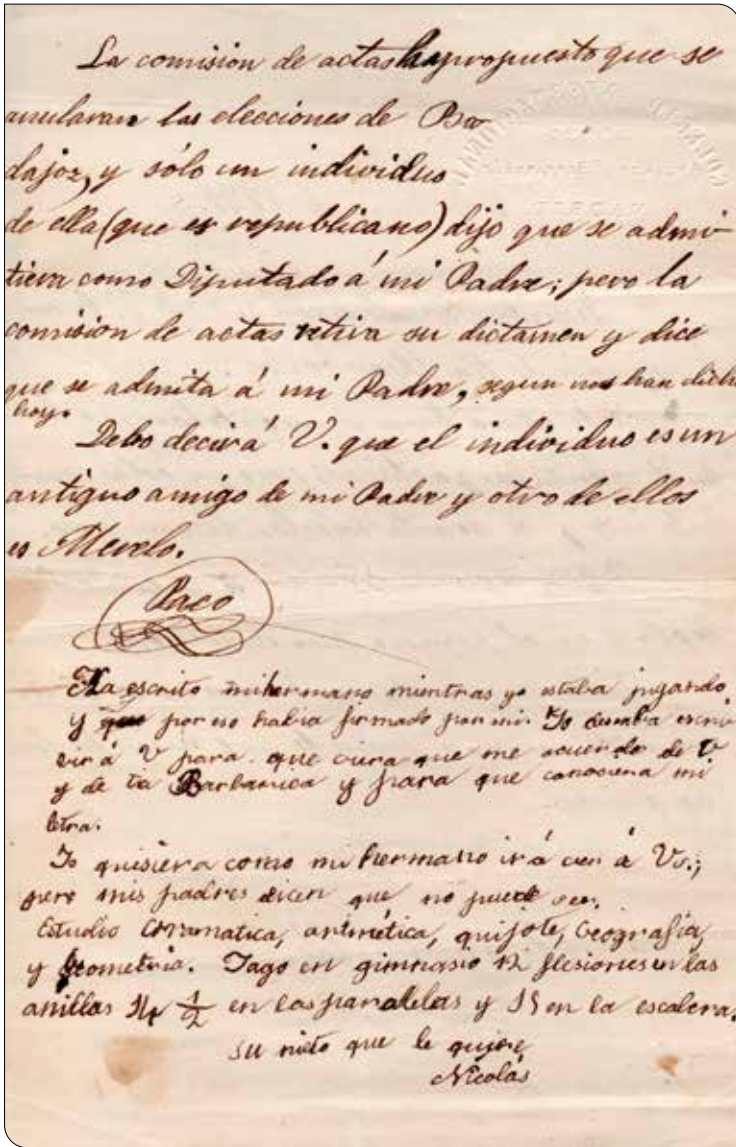 La comision de actas ha propuesto que se
anularan las elecciones de Ba
dajoz, y sólo un individuo
de ella (que es republicano) dijo que se admi-
tiera como Diputado á mi Padre; pero la
comisión de actas retira su dictamen y dice
que se admita á mi Padre, segun nos han dicho
hoy.
Debo decir á V. que el individuo es un
antiguo amigo de mi Padre y otro de ellos
es Merelo.
Paco
Ha escrito mi hermano mientras yo estaba jugando
y por eso habia firmado por mi. Yo deseaba escri-
vir á V para que viera que me acuerdo de V
y de tia Barbarica y para que conosiera mi
letra.
Yo quisiera como mi hermano ir á ver á Vs.;
pero mis padres dicen que no puede ser.
Estudio Gramatica, aritmética, quijote, Geografia,
y Geometria. Hago en gimnasio 12 flesiones en las
anillas 14 1/2 en las paralelas y 15 en la escalera.
su nieto que le quiere
Nicolás